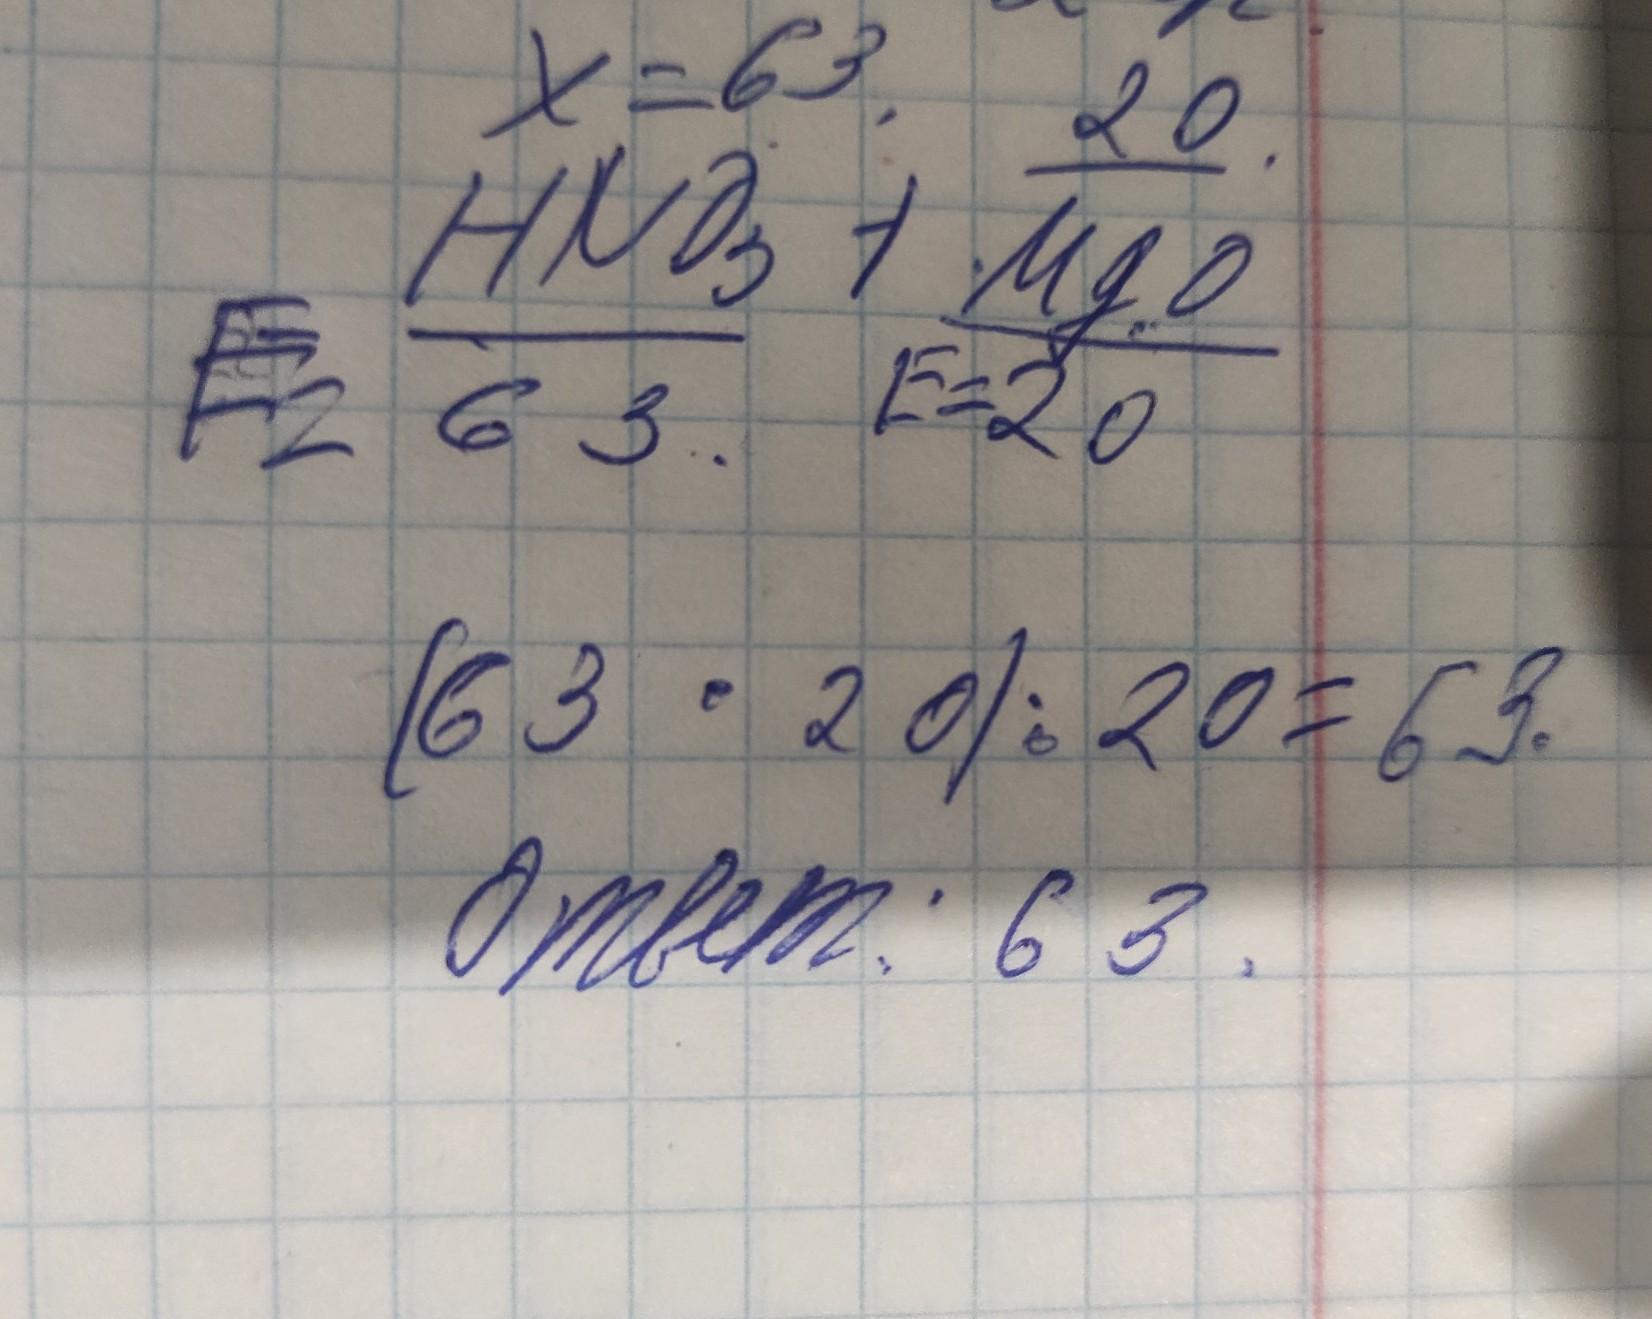 X = 63. 20.
HNO3 + MgO
E= 63. E=20
(63 · 20) : 20 = 63.
Ответ: 63.